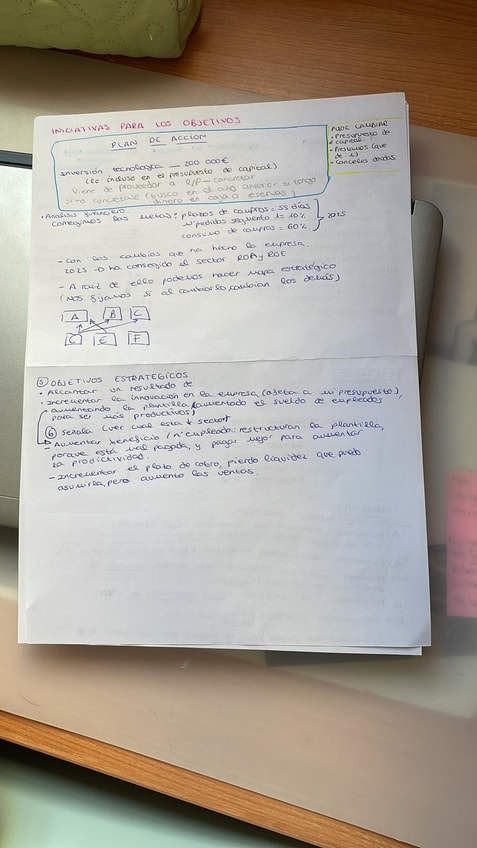 INICIATIVAS PARA LOS OBJETIVOS
PLAN DE ACCIÓN
Inversión tecnológica — 200 000€
(lo incluso en el presupuesto de capital)
Viene de proveedor a L/P — concretar
si no concretase (busco en el año anterior si tengo
dinero en caja o reservas)
PUDE CAMBIAR
• Presupuesto de
capital.
• Préstamos (que
de L)
• Cancelas deudas.
• Análisis financiero:
conseguimos las metas: plazos de compras = 55 días
nº pedidos segmento 1 = 10%
consumo de compras = 60%
2025
- Con los cambios que ha hecho la empresa
2025 → ha conseguido el sector ROA y ROE
- A raíz de ello podemos hacer mapa estratégico
(Nos fijamos si al cambiarlo cambian los demás)
A B C
C E F
⑤ OBJETIVOS ESTRATÉGICOS
• Alcanzar un resultado de
• Incrementar la innovación en la empresa (afecta a mi presupuesto),
aumentando la plantilla (aumentado el sueldo de empleados
para ser más productivos)
⑥ Señala (ver cual esta sector
- Aumentar beneficio / nº empleado: restructuran la plantilla,
porque está mal pagada, y pagar mejor para aumentar
la productividad.
- Incrementar el plazo de cobro, pierdo liquidez que puedo
asumirla, pero aumento las ventas.